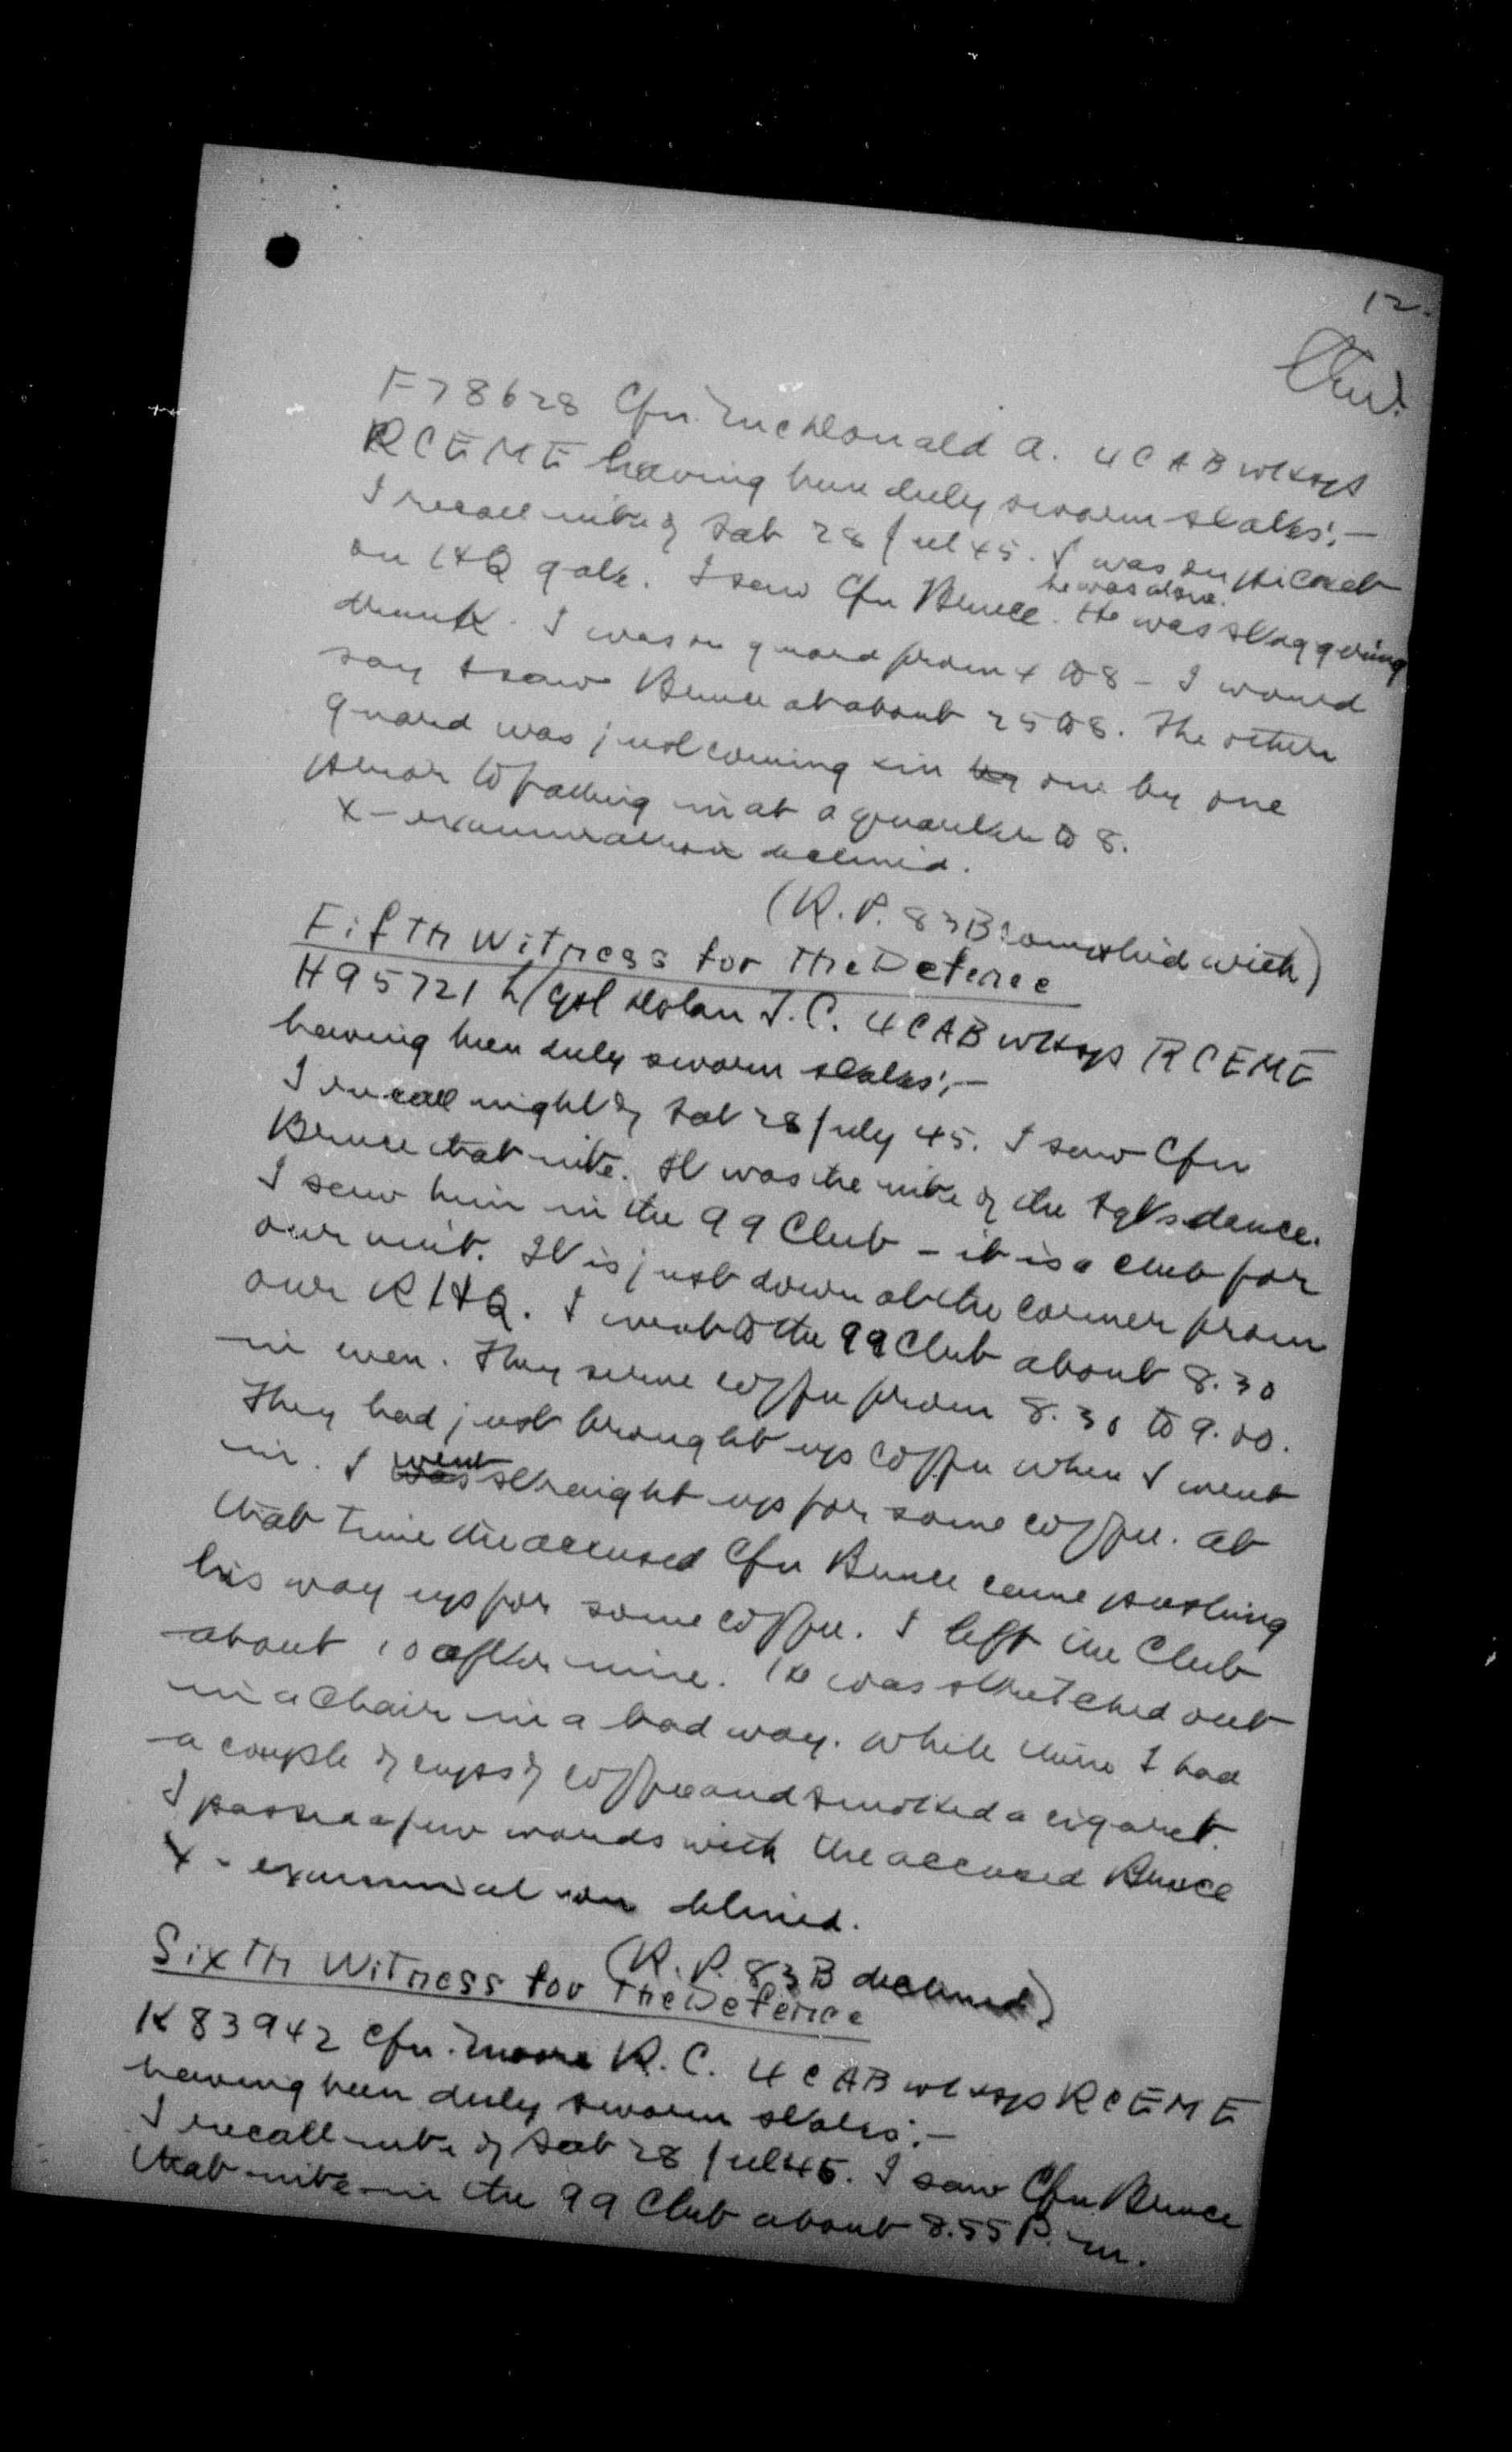 12.
F78628 Cfn. MacDonald A. 4 CAB wksps
RCEME having been duly sworn states:-
I recall nite of Sat 28 Jul 45. I was on picket
on HQ gate. I saw Cfn Bruce. he was alone. He was staggering
drunk. I was on guard from 4 to 8 - I would
say I saw Bruce at about 25 to 8. The other
guard was just coming in one by one
prior to falling in at a quarter to 8.
X-examination declined.
(R.P. 83B complied with)
Fifth Witness for The Defence
H95721 L/Cpl Dolan J.C. 4 CAB wksps RCEME
having been duly sworn states:-
I recall night of Sat 28 July 45. I saw Cfn
Bruce that nite. It was the nite of the Sgts dance.
I saw him in the 99 Club - it is a club for
our unit. It is just down at the corner from
our RHQ. I went to the 99 Club about 8.30
in even. They serve coffee from 8.30 to 9.00.
They had just brought up coffee when I went
in. I went straight up for some coffee. At
that time the accused Cfn Bruce came pushing
his way up for some coffee. I left the Club
about 10 after nine. He was stretched out
in a chair in a bad way. While there I had
a couple of cups of coffee and smoked a cigaret.
I passed a few words with the accused Bruce
X-examination delined.
(R.P. 83B declined)
Sixth Witness for The Defence
K83942 Cfn. Moore R.C. 4 CAB wksps RCEME
having been duly sworn states:-
I recall nite of Sat 28 Jul 45. I saw Cfn Bruce
that nite in the 99 Club about 8.55 P.m.